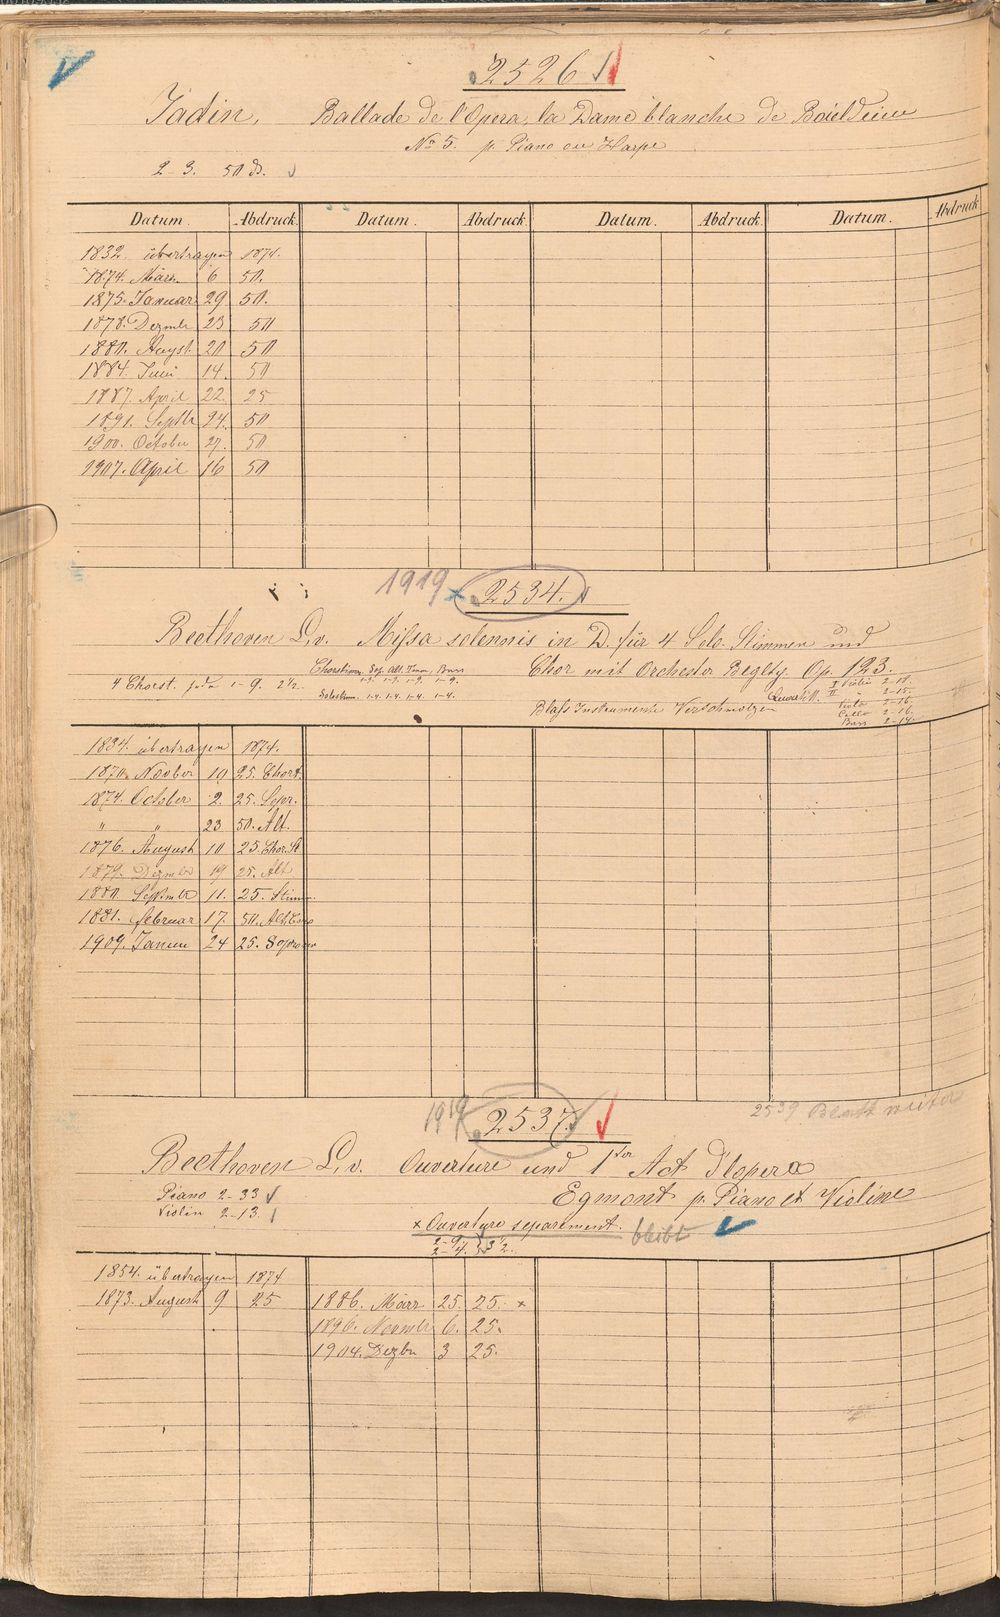 2526
Jadin, Ballade de l'Opera la Dame blanche de Boieldieu
No 5. p. Piano ou Harpe
2-3. 50 ds.
Datum Abdruck. Datum. Abdruck Datum. Abdruck. Datum. Abdruck
1832. übertragen 1874.
1874. März. 6 50.
1875. Januar 29 50.
1878. Dezmbr 23 50
1880. Augst. 20 50
1884. Juni 14. 50
1887. April 22. 25
1891. Septbr 24. 50
1900. October 27. 50
1907. April 16 50
1919 x 2534.
Beethoven L. v. Missa solennis in D. für 4 Solo-Stimmen und
Chorstimm. Sop. Alt. Tenor, Bass Chor mit Orchester Begltg. Op. 123.
1-9. 1-9. 1-9. 1-9.
4 Chorst. jede 1-9. 2½.
Solostim. 1-4. 1-4. 1-4. 1-4.
I Violin 2-18.
II " 2-15.
Viola 2-16.
Blass Instrumente Verschmolzen
Cello 2-16.
Bass 2-14.
1834. übertragen 1874.
1870. Novber 19 25. Chorst.
1874. October 2. 25. Sopr.
" " 23 50. Alt.
1876. August 10 25. Chor. St
1879. Dezmbr 19 25. Alt
1880. Septmbr 11. 25. Stimm.
1881. februar 17. 50. Alt. Bass
1909. Januar 24 25. Sopran
2539 Blatt weiter
1919 2537.
Beethoven L. v. Ouverture und 1ter Act d'lopera
Piano 2-33 Egmont p. Piano et Violine
Violin 2-13.
x Ouverture separement. bleibt
2-9.
2-4. } 3½.
1854. übertragen 1874
1873. August 9 25 1886. März 25. 25. x
1896. Novmbr 6. 25.
1904. Dezbr 3 25.